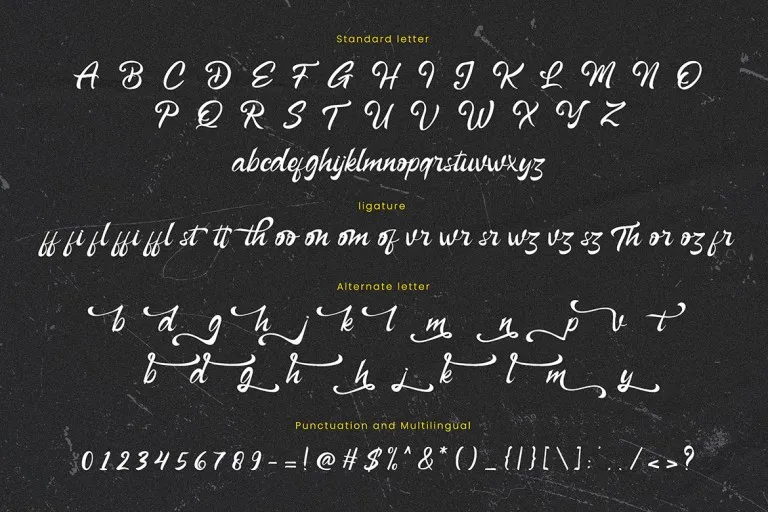 Standard letter
A B C D E F G H I J K L M N O
P Q R S T U V W X Y Z
abcdefghijklmnopqrstuvwxyz
ligature
ff fi fl ffi ffl st tt th oo on om of vr wr sr wz vz sz Th or oz fr
Alternate letter
b d g h j k l m n p v t
b d g h h j k l m y
Punctuation and Multilingual
0123456789-=!@#$%^&*()_{|}[\]:'../<>?